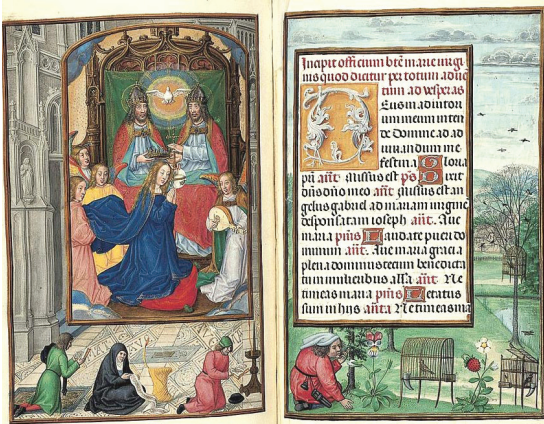 Incipit officium bt̄e marie uirgi
nis quod dicitur per totum aduē
tum ad vesperas
Deus in adiutori
um meum inten
de Domine ad ad
iuuandum me
festina Gloria
prī añt̄ Missus est ps̄ Dixit
dn̄s dn̄o meo añt̄ Missus est an
gelus gabriel ad mariam uirginē
desponsatam ioseph añt̄. Aue
maria psm̄s Laudate pueri do
minum añt̄. Aue maria gracia
plena dominus tecum benedicta
tu in mulieribus alla añt̄ Ne
timeas maria psm̄s Letatus
sum in hiis añt̄a Ne timeas ma